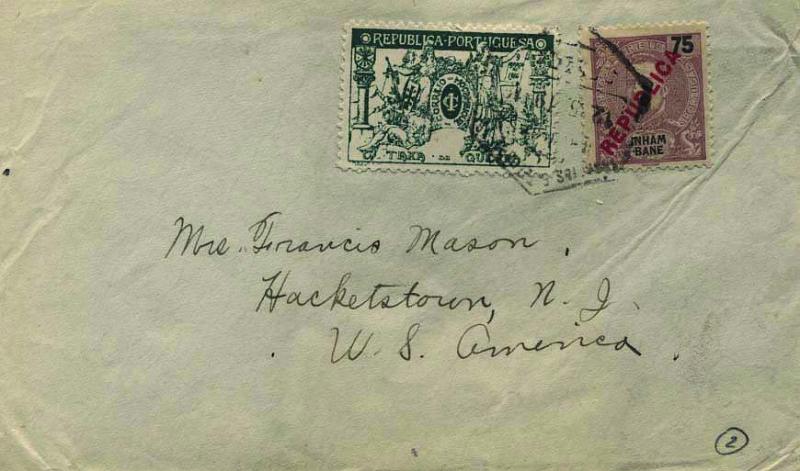 REPUBLICA·PORTUGUESA
TAXA DE GUERRA
75
REPUBLICA
INHAM
BANE
Mrs. Francis Mason.
Hacketstown, N. J.
W. S. America.
2